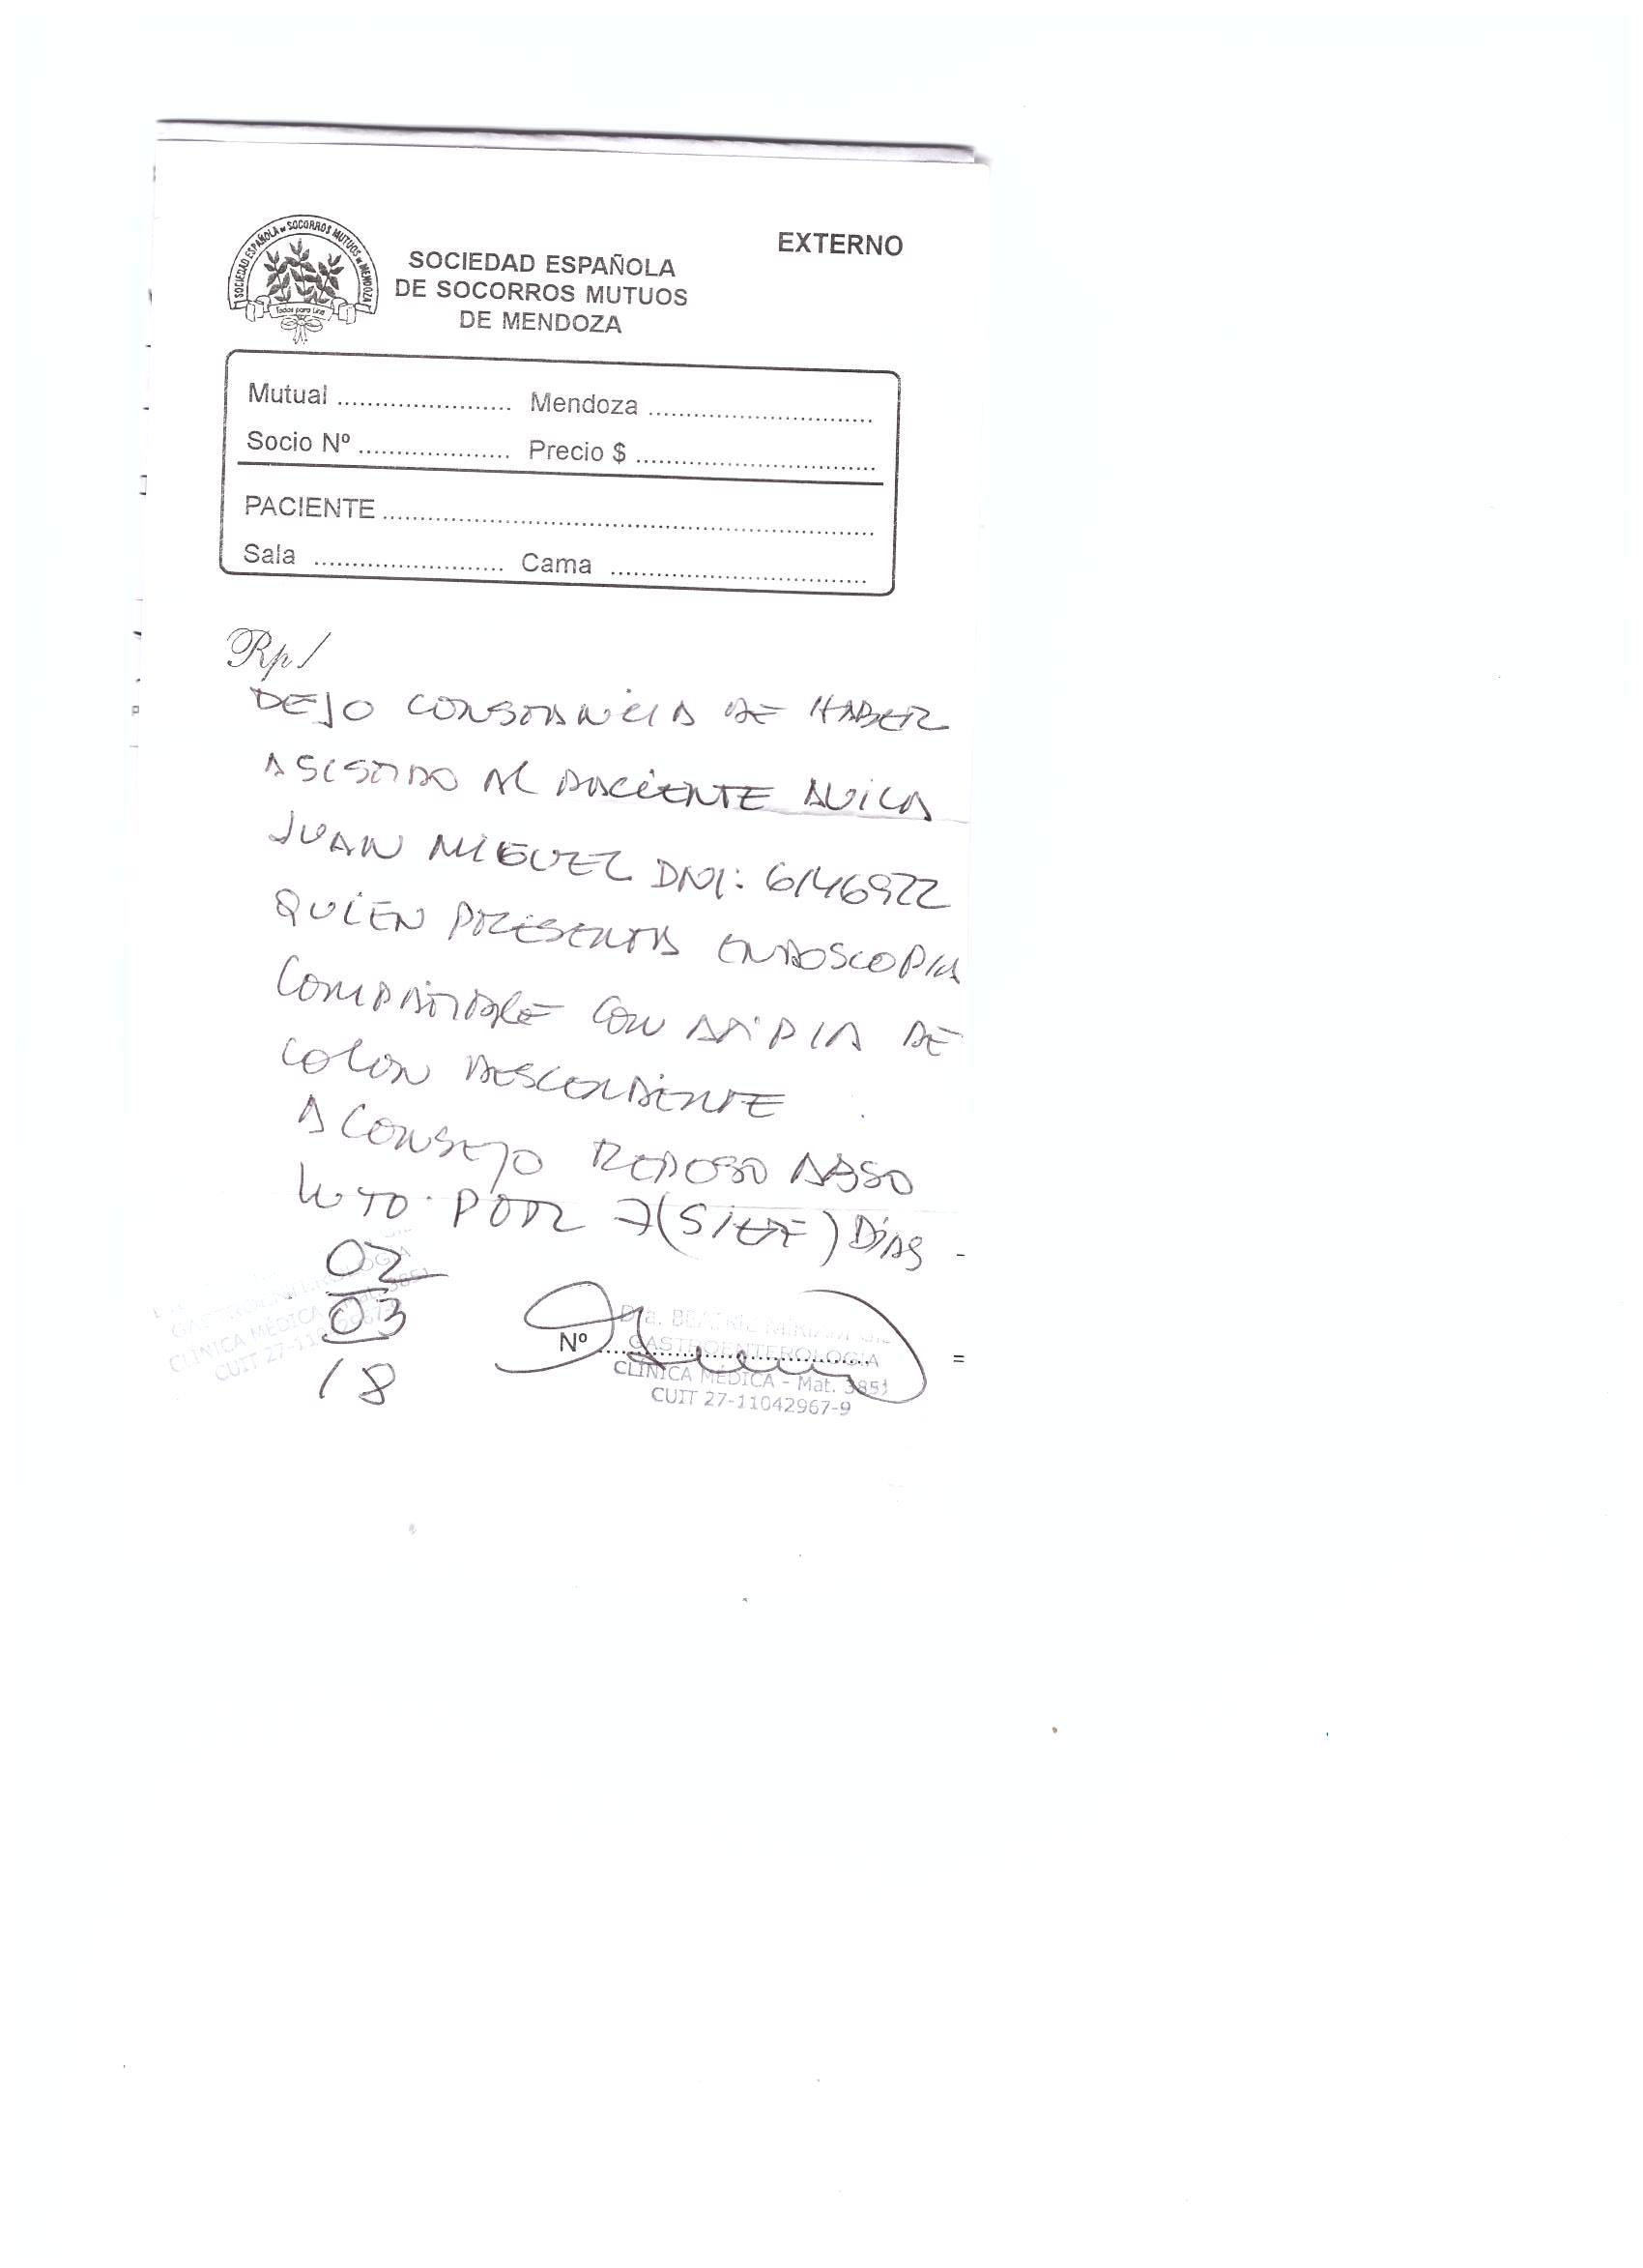 SOCIEDAD ESPAÑOLA DE SOCORROS MUTUOS DE MENDOZA
Todos para Uno
EXTERNO
SOCIEDAD ESPAÑOLA
DE SOCORROS MUTUOS
DE MENDOZA
Mutual ....................... Mendoza .............................
Socio Nº .................... Precio $ ...............................
PACIENTE ................................................................
Sala ......................... Cama .................................
Rp/
DEJO CONSTANCIA DE HABER
ASISTIDO AL PACIENTE AVILA
JUAN MIGUEL DNI: 6146922
QUIEN PRESENTA ENDOSCOPIA
COMPATIBLE CON DE
COLON DESCENDENTE
ACONSEJO REPOSO ABSO
LUTO POR 7 (SIETE) DÍAS -
02
03
18
GASTROENTEROLOGIA
CLÍNICA MÉDICA Mat. 3851
CUIT 27-11042967-9
Dra. BEATRIZ MIRIAM
Nº
GASTROENTEROLOGIA
CLÍNICA MÉDICA - Mat. 3851
CUIT 27-11042967-9
=